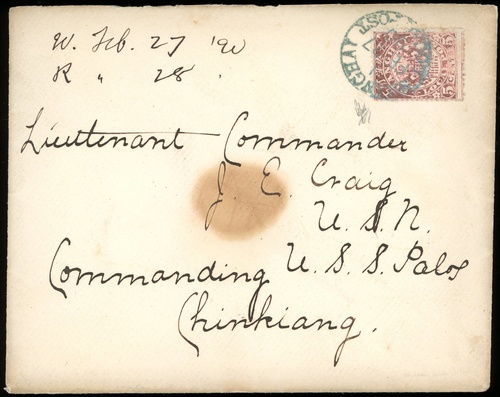 W. Feb. 27 '90
R " 28.
Lieutenant Commander
J. E. Craig
U. S. N.
Commanding U. S. S. Palos
Chinkiang.